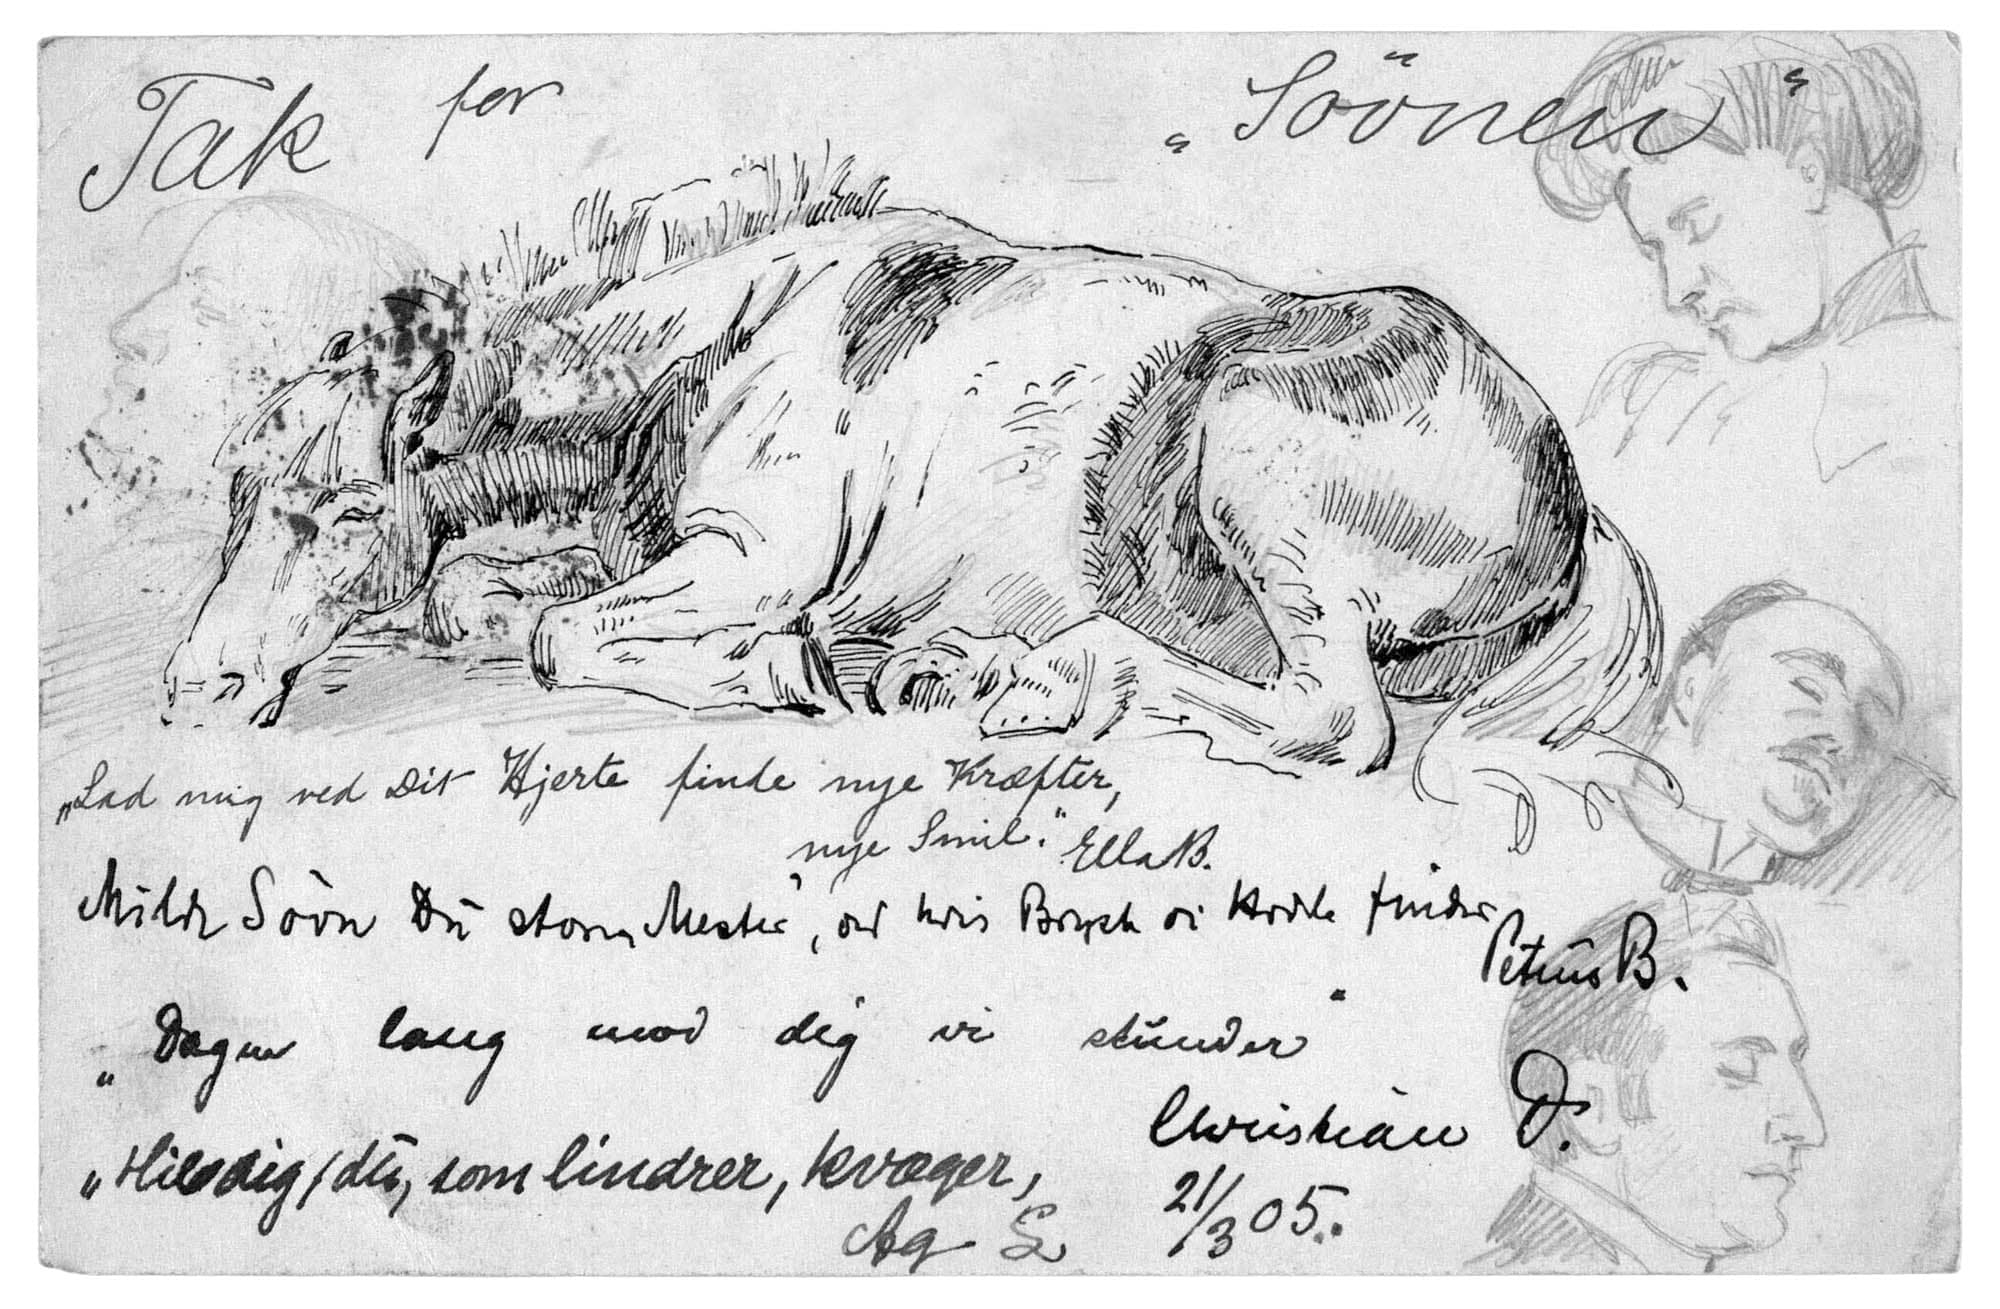 Tak for „Söönen"
„Lad mig ved Dit Hjerte finde nye Kræfter,
nye Smil." Ella B.
Milde Sövn Du store Mester, ved hvis Bryst vi Hvile finder
Petrus B.
„Dagen lang mod dig vi stunder"
Christian D.
„Hil dig, du, som lindrer, kvæger,
Ag L
21/3 05.